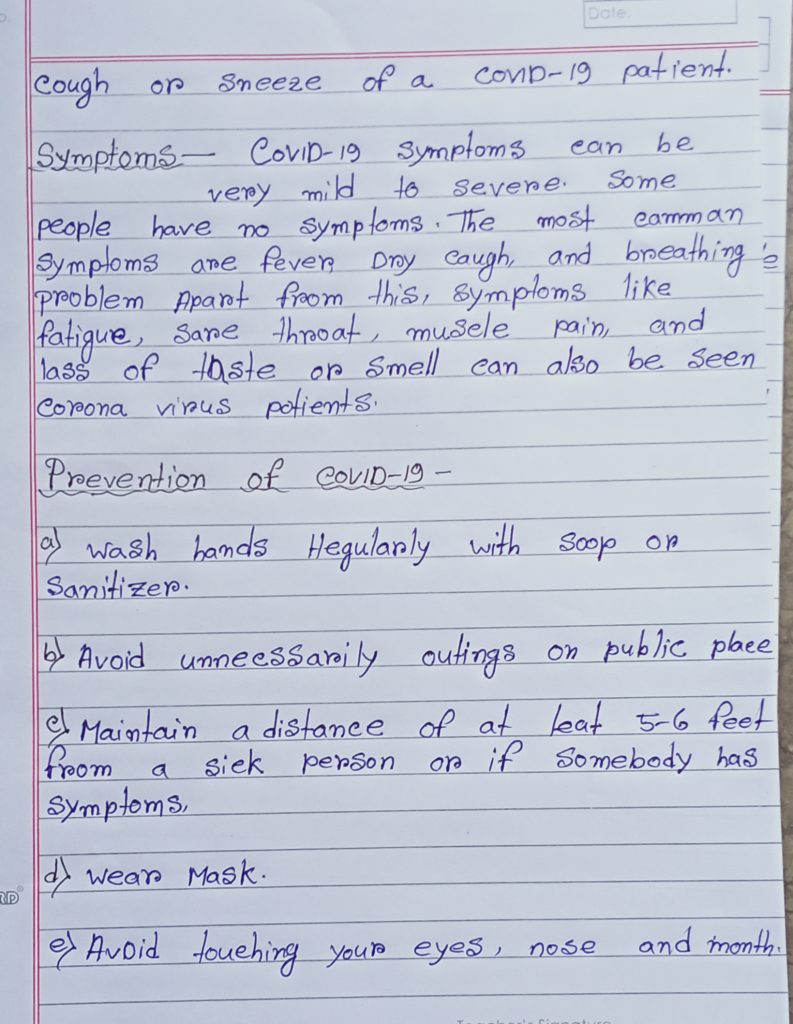 Date.
Cough or Sneeze of a COVID-19 patient.
Symptoms- COVID-19 symptoms can be
very mild to severe. Some
people have no symptoms. The most camman
symptoms are fever, Dry caugh, and breathing
problem Apart from this, symptoms like
fatigue, sare throat, muscle pain, and
lass of taste or smell can also be seen
corona virus potients.
Prevention of COVID-19 -
a) wash hands Hegularly with soop or
Sanitizer.
b) Avoid unnecssarily outings on public place
c) Maintain a distance of at leat 5-6 feet
from a sick person or if somebody has
symptoms,
d) wear Mask.
e) Avoid touching your eyes, nose and month.